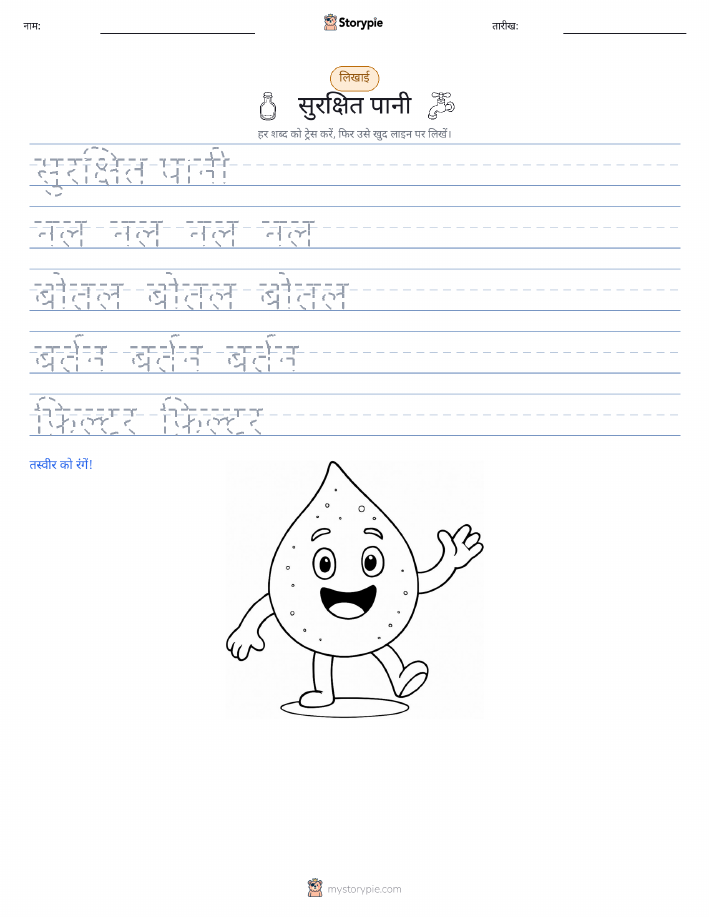 नाम:
Storypie
तारीख:
लिखाई
सुरक्षित पानी
हर शब्द को ट्रेस करें, फिर उसे खुद लाइन पर लिखें।
सुरक्षित पानी
नल नल नल नल
बोतल बोतल बोतल
बर्तन बर्तन बर्तन
फ़िल्टर फ़िल्टर
तस्वीर को रंगें!
mystorypie.com